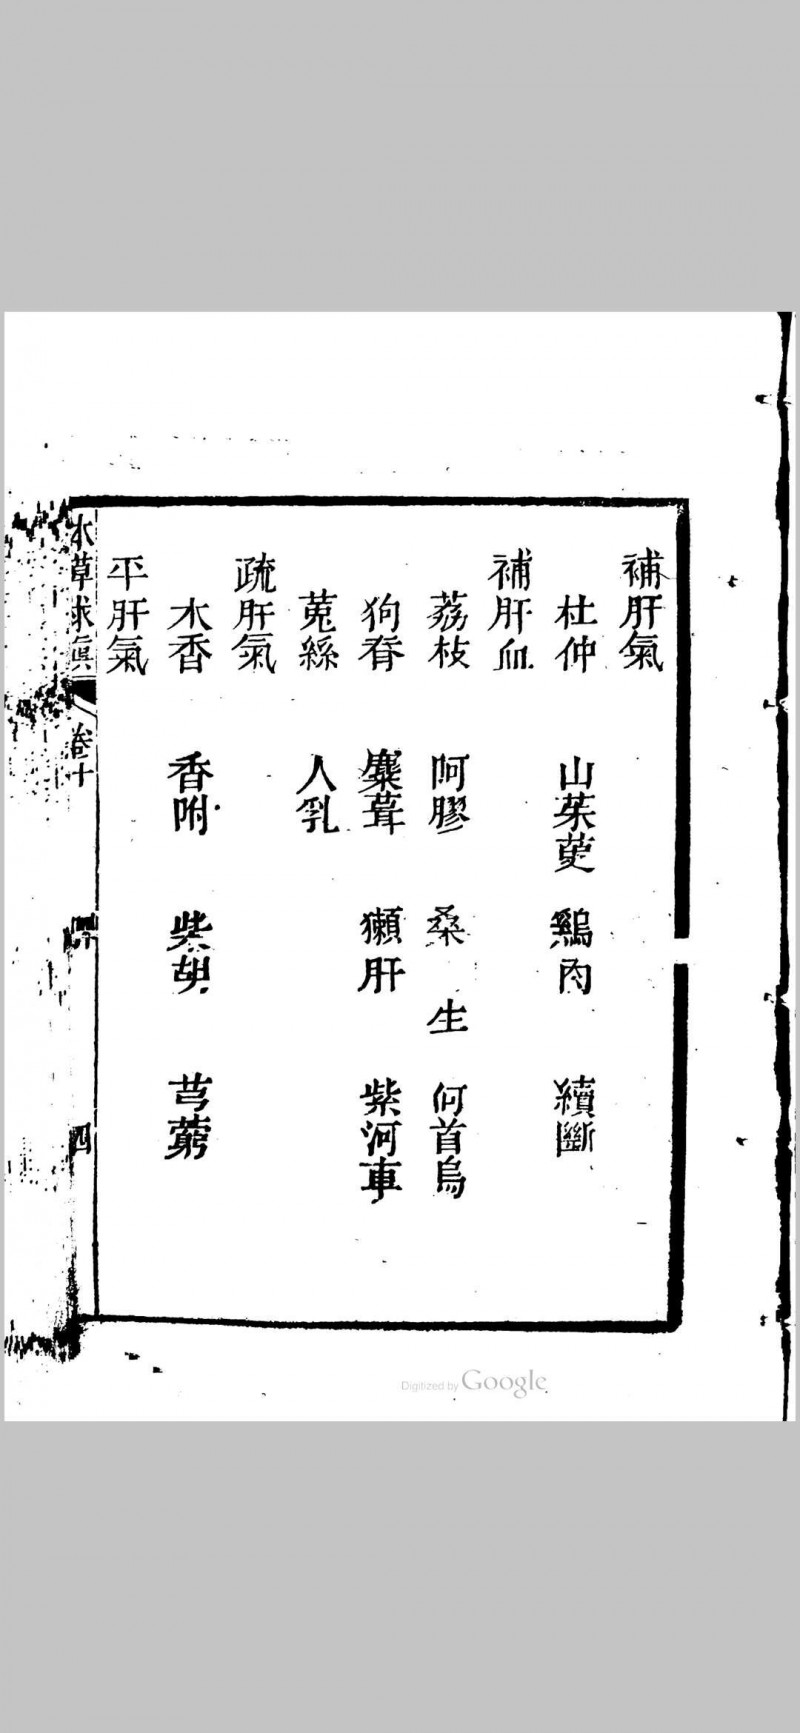 補肝氣
杜仲 山茱萸 鷄肉 續斷
補肝血
荔枝 阿膠 桑 生 何首烏
狗脊 麋茸 獺肝 紫河車
菟絲 人乳
疏肝氣
木香 香附 柴胡 芎藭
平肝氣
本草求真 卷十 四
Digitized by Google